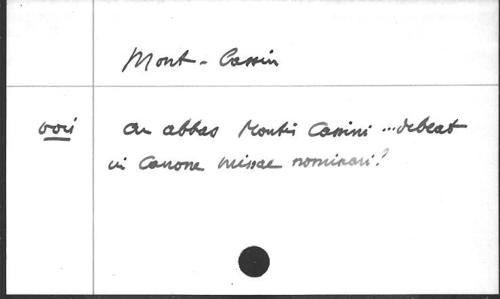 Mont-Cassin
voir an abbas Montis Cassini ... debeat
in Canone missae nominari?